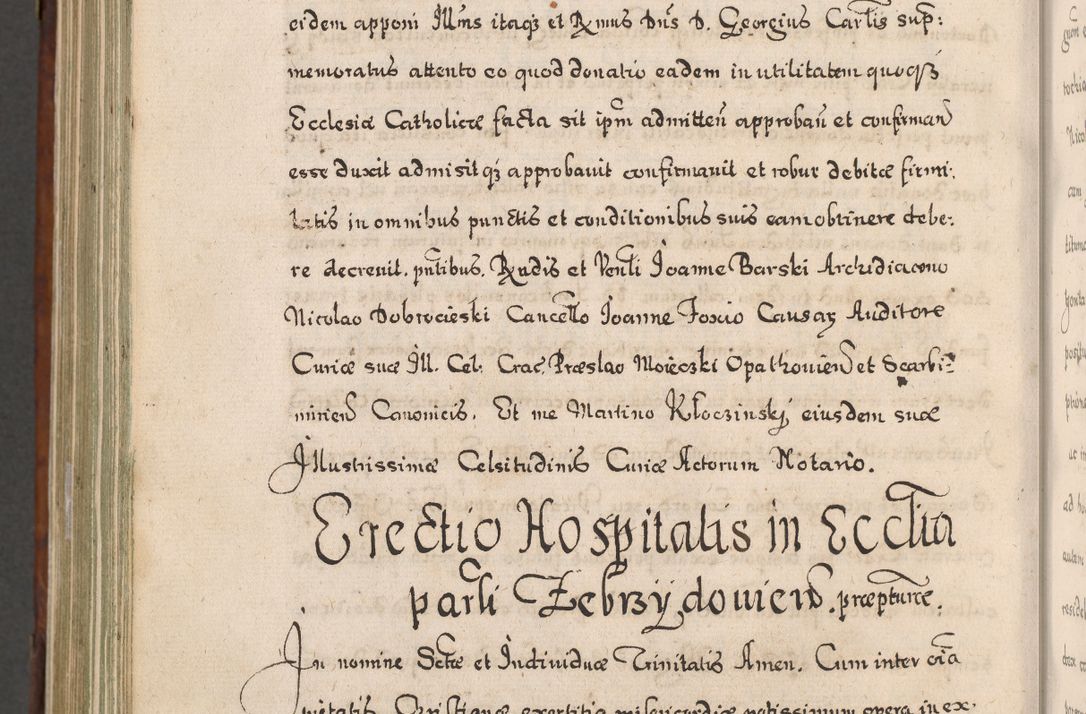 eidem apponi Illms itaqȝ et Rmus Dns D. Georgius Carlis sup:
memoratus attento eo quod donatio eadem in utilitatem quoqȝ
Ecclesiæ Catholicæ facta sit ipm admitten̄ approban̄ et confirman̄
esse duxit admisitqȝ approbavit confirmavit et robur debitæ firmi:
tatis in omnibus punctis et conditionibus suis eam obtinere debe:
re decrevit. pntibus. Rndis et Venli Joanne Barski Archidiacono
Nicolao Dobrocieski Cancello Joanne Foxio Causaꝝ Auditore
Curiæ suæ Ill. Cel. Crac. Præslao Moieczki Opathovien̄ et Scarbi:
mirien̄ Canonicis. Et me Martino Kłoczinskj eiusdem suæ
Jllustrissimæ Celsitudinis Curiæ Actorum Notario.
Erectio Hospitalis in Ecclia
parli Zebrzydovien̄. præpturæ.
Jn nomine Sctæ et Individuæ Trinitatis Amen. Cum inter oia
pietatis Christianæ exercitia misericordiæ potissimum opera in ex: